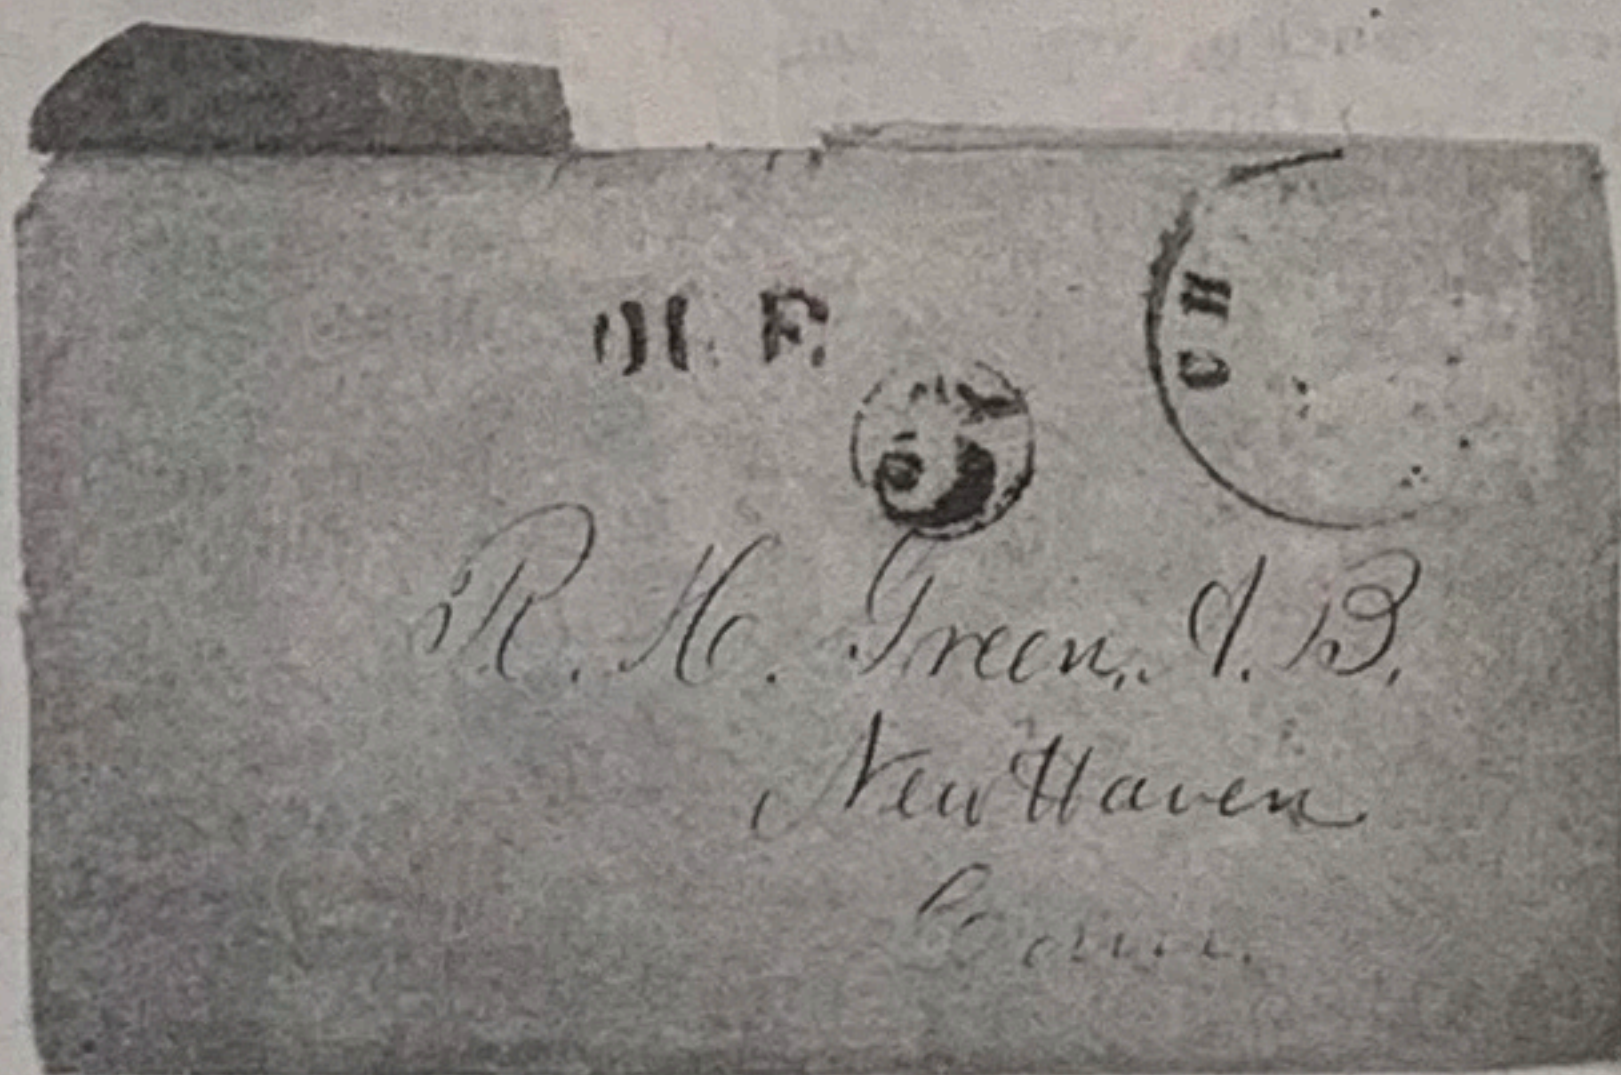 CH
R. H. Green, A. B.
New Haven
Conn.